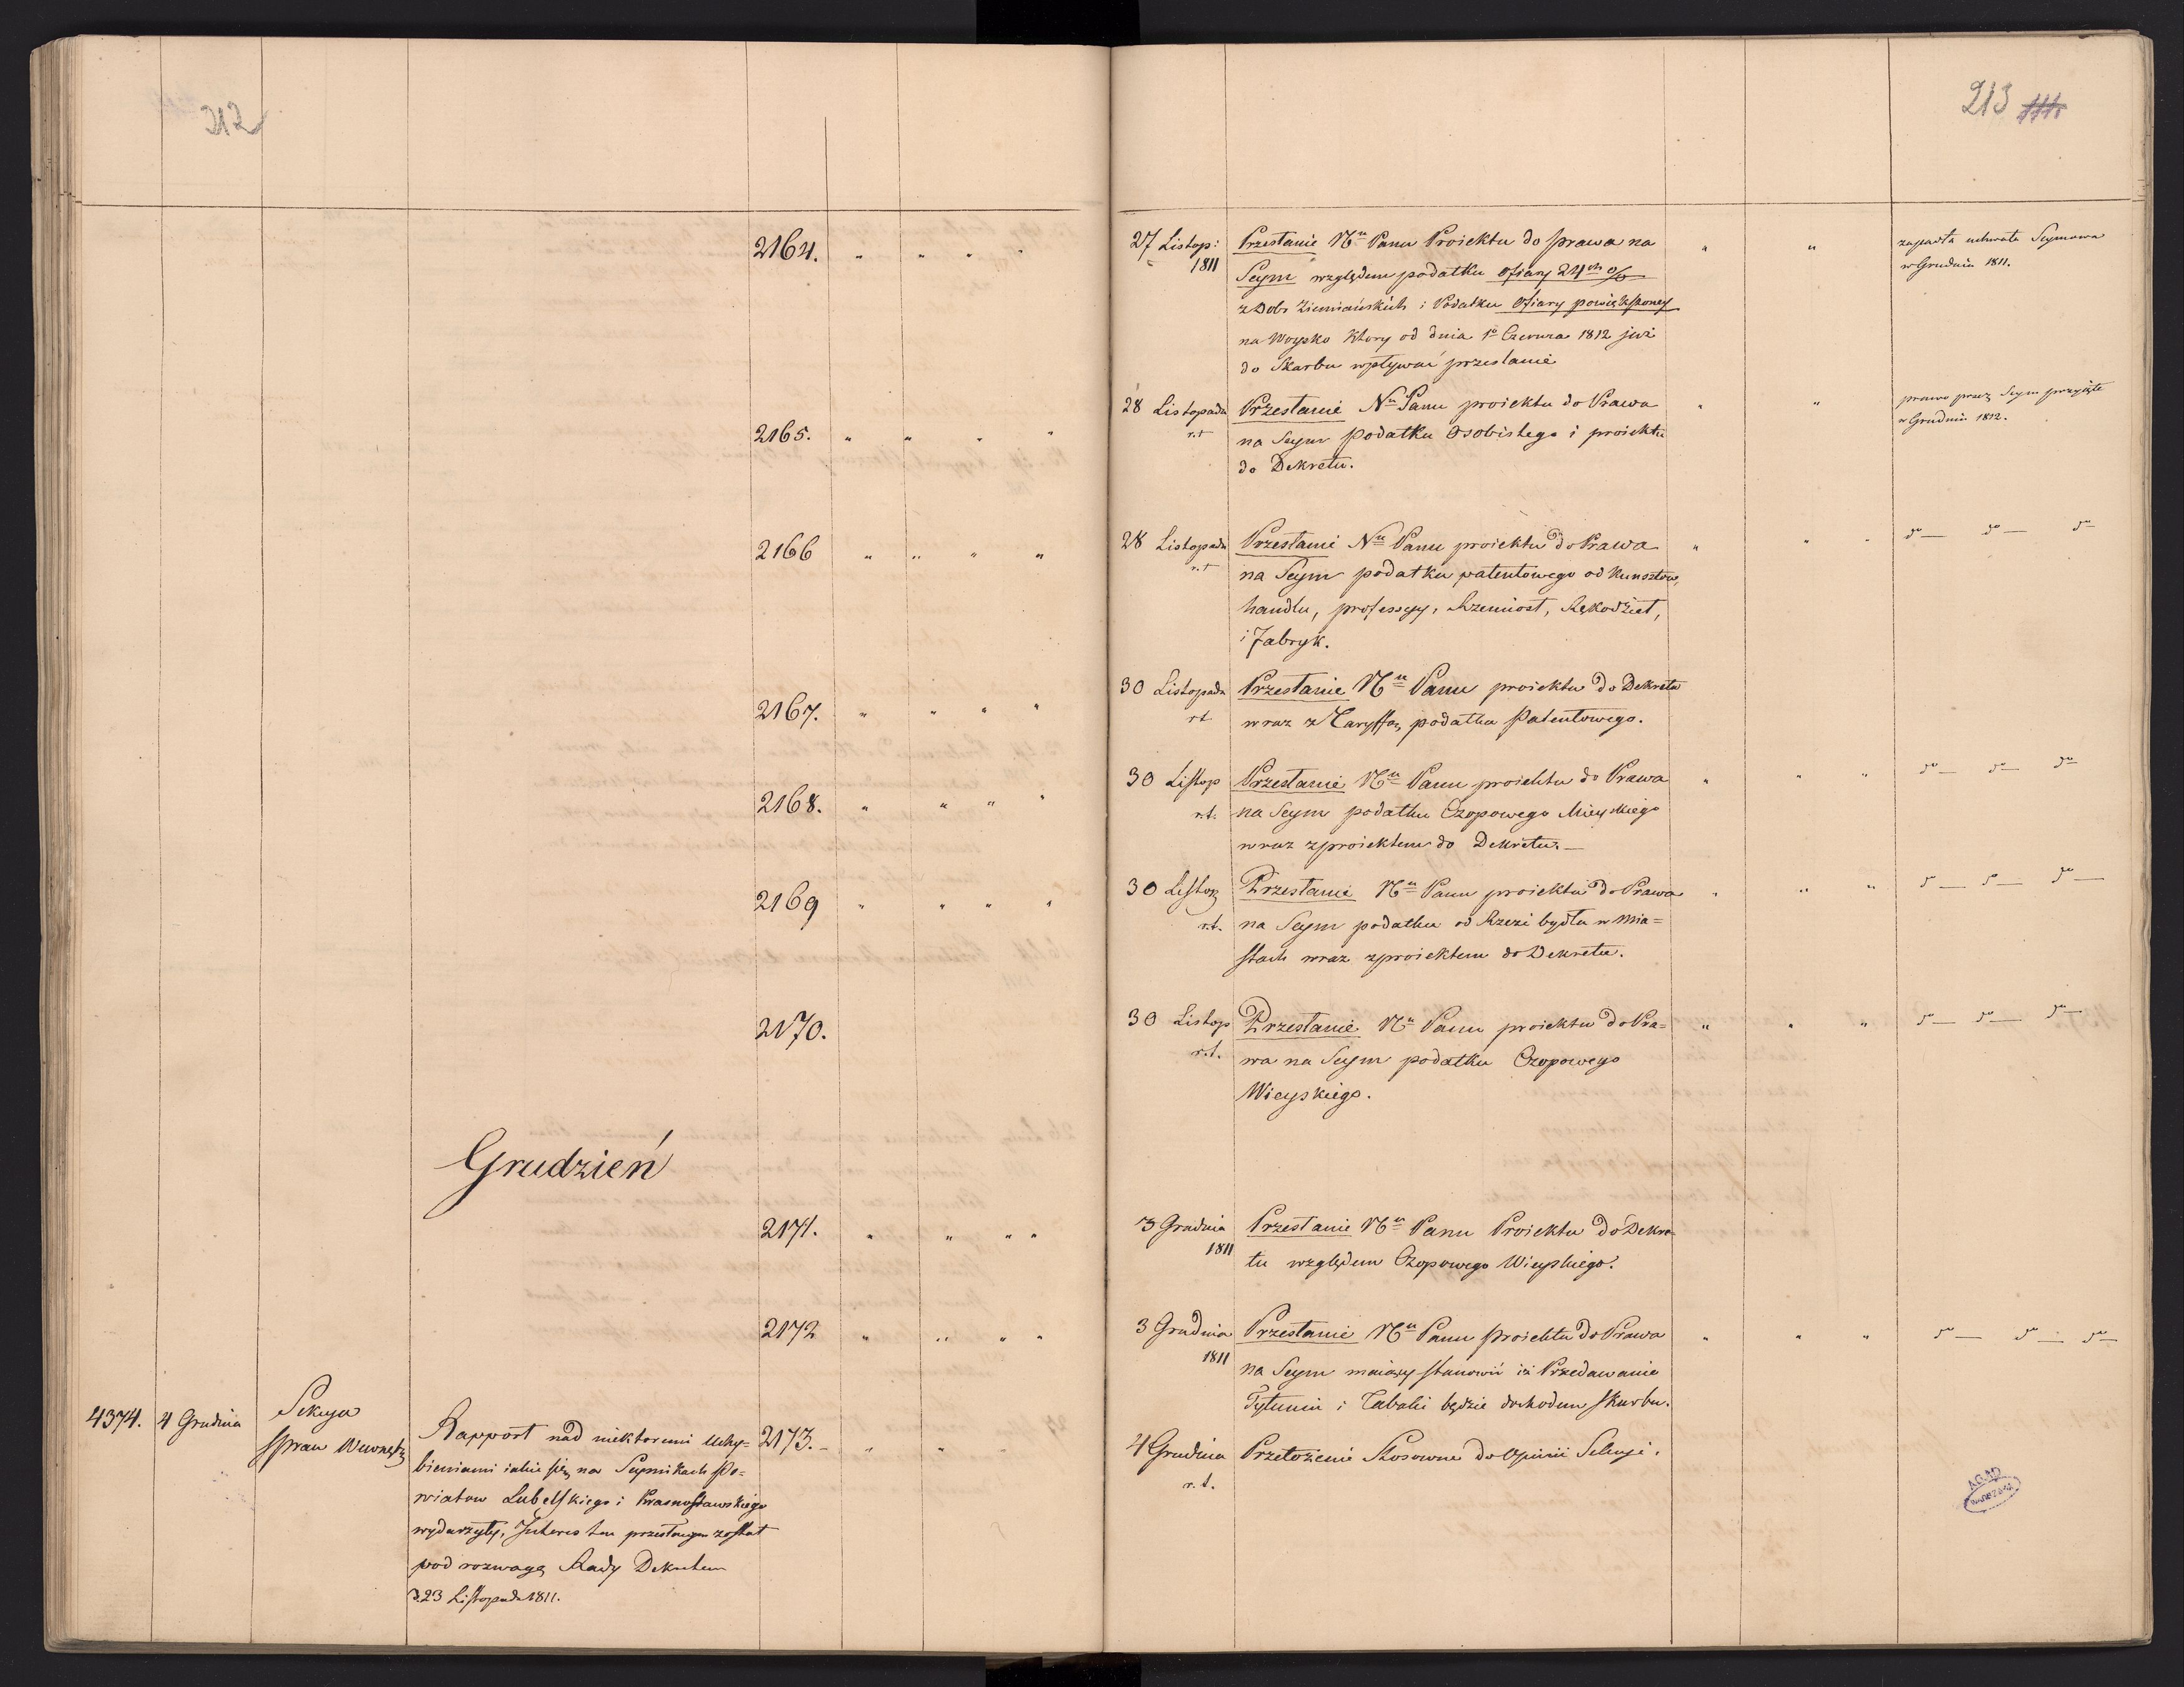 212
2164.
2165.
2166
2167.
2168.
2169
2170.
Grudzień
2171.
2172
4374. 4 Grudnia
Sekcya
Spraw Wewnętz
Rapport nad niektoremi uchy=
bieniami iakie się na Seymikach Po=
wiatow Lubelskiego i Krasnostawskiego
wydarzyły, Interes ten przesłanym został
pod rozwagę Rady Dekretem
z 23 Listopada 1811.
2173.
213
27 Listop:
1811
Przesłanie Nu Panu Proiektu do prawa na
Seym względem podatku ofiary 24ch %
z Dobr Ziemiańskich i Podatku Ofiary powiększoney
na Woysko ktory od dnia 1o Czerwca 1812 już
do Skarbu wpływać przestanie
zapadła uchwała Seymowa
w Grudniu 1811.
28 Listopada
r.t
Przesłanie Nu Panu proiektu do Prawa
na Seym podatku Osobistego i proiektu
do Dekretu.
prawo przez Seym przyięte
w Grudniu 1812.
28 Listopada
r.t
Przesłanie Nu Panu proiektu do Prawa
na Seym podatku patentowego od kunsztow,
handlu, professyy, Rzemiosł, Rękodzieł,
i Fabryk.
do — do — do —
30 Listopada
rt
Przesłanie Nu Panu proiektu do Dekretu
wraz z Taryffą podatku Patentowego.
30 Listop
r.t.
Przesłanie Nu Panu proiektu do Prawa
na Seym podatku Czopowego Mieyskiego
wraz z proiektem do Dekretu. —
do — do — do —
30 Listop
r.t.
Przesłanie Nu Panu proiektu do Prawa
na Seym podatku od Rzezi bydła w Mia=
stach wraz z proiektem do Dekretu.
do — do — do —
30 Listop
r.t.
Przesłanie Nu Panu proiektu do Pra=
wa na Seym podatku Czopowego
Wieyskiego.
do — do — do —
3 Grudnia
1811
Przesłanie Nu Panu Proiektu do Dekre=
tu względem Czopowego Wieyskiego.
3 Grudnia
1811
Przesłanie Nu Panu proiektu do Prawa
na Seym maiący stanowić iż Przedawanie
Tytuniu i Tabaki będzie dochodem skarbu.
do — do — do —
4 Grudnia
r.t.
Przełożenie Stosowne do Opinii Sekcyi.
AGAD
WARSZAWA